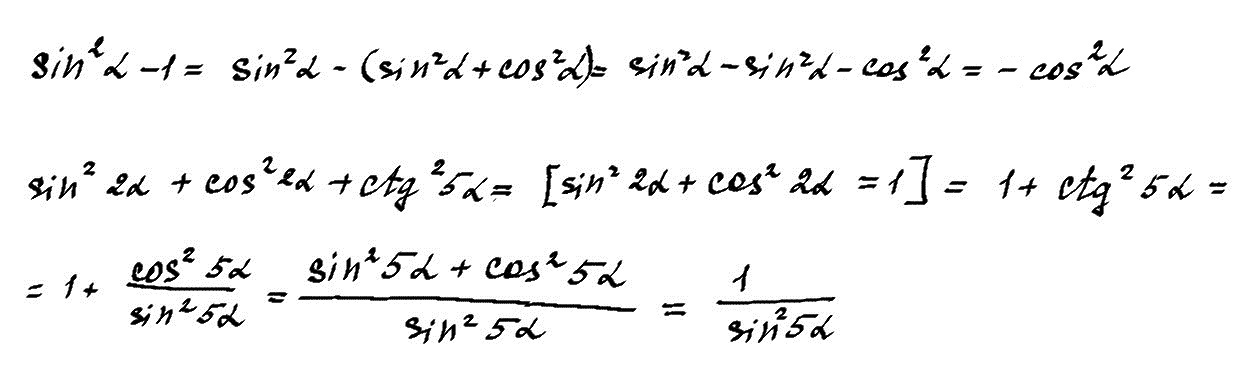 sin²α - 1 = sin²α - (sin²α + cos²α) = sin²α - sin²α - cos²α = - cos²α
sin² 2α + cos² 2α + ctg² 5α = [sin² 2α + cos² 2α = 1] = 1 + ctg² 5α =
= 1 + cos² 5α / sin² 5α = (sin² 5α + cos² 5α) / sin² 5α = 1 / sin² 5α